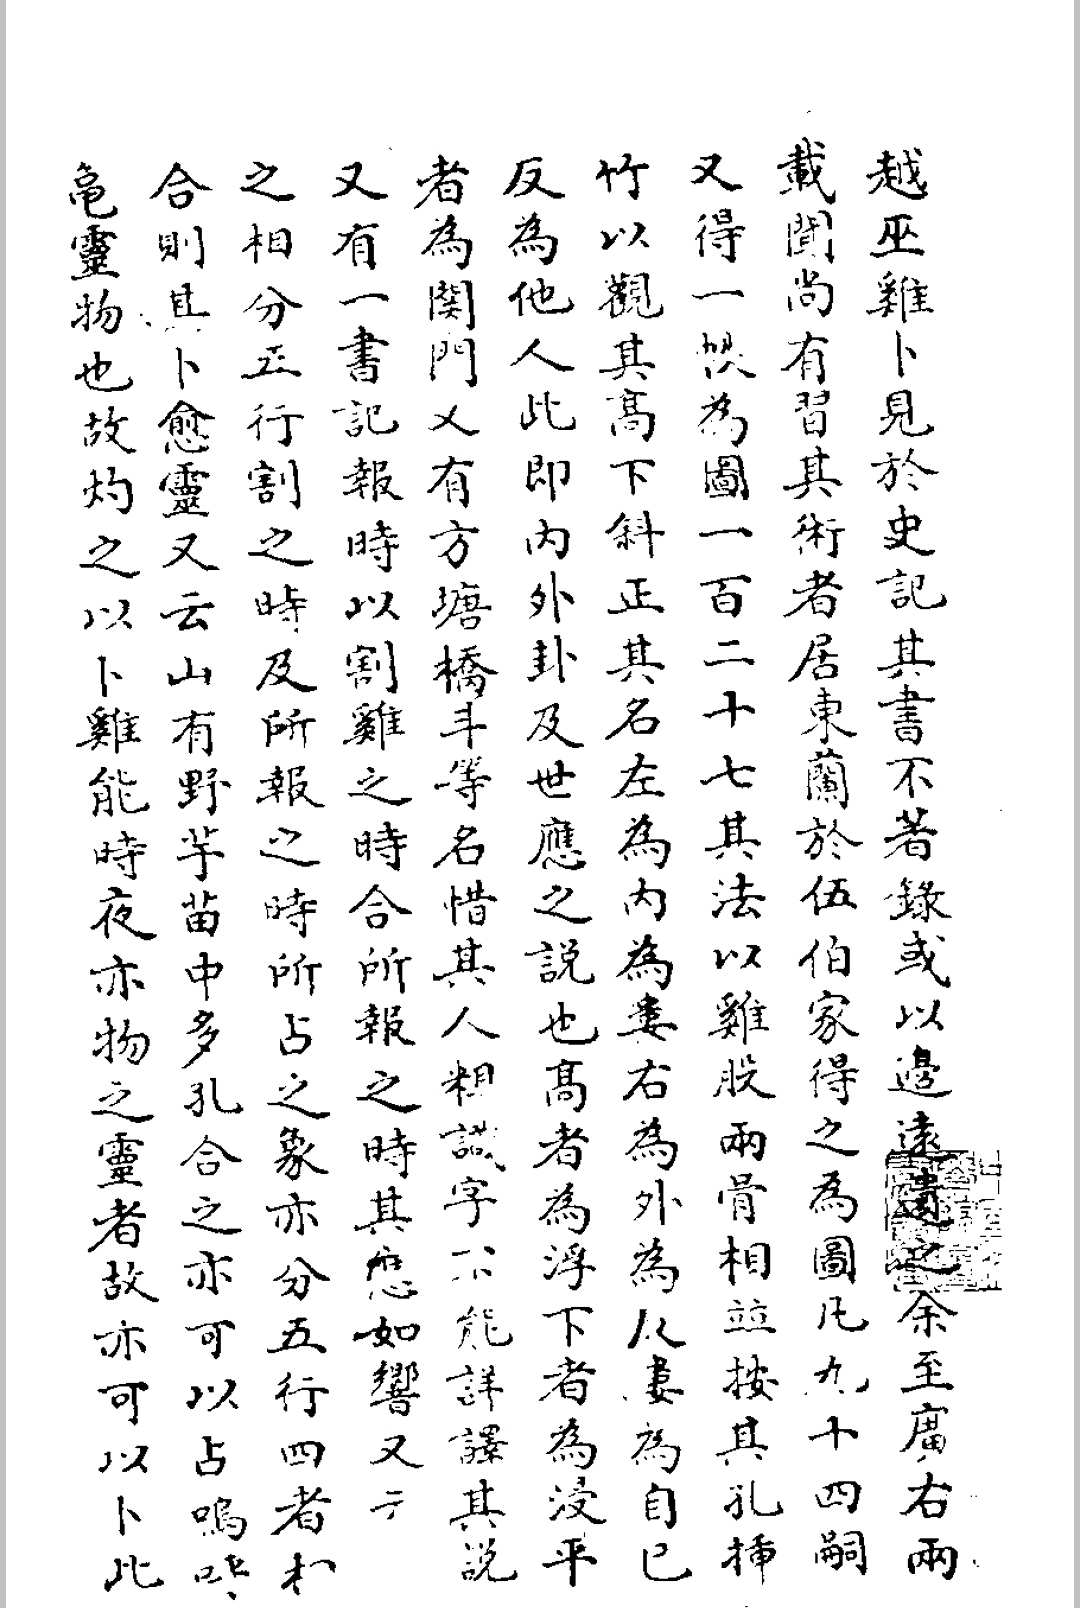 越巫雞卜見於史記其書不著錄或以邊遠遺之余至廣右兩
載聞尚有習其術者居東蘭於伍伯家得之為圖凡九十四嗣
又得一帙為圖一百二十七其法以雞股兩骨相並按其孔揷
竹以觀其髙下斜正其名左為内為婁右為外為从婁為自已
反為他人此即内外卦及世應之説也髙者為浮下者為浸平
者為関門乂有方塘橋斗等名惜其人粗識字不能詳譯其説
又有一書記報時以割雞之時合所報之時其應如響又云
之相分五行割之時及所報之時所占之象亦分五行四者相
合則其卜愈靈又云山有野芋苗中多孔合之亦可以占嗚呼
龟靈物也故灼之以卜雞能時夜亦物之靈者故亦可以卜此